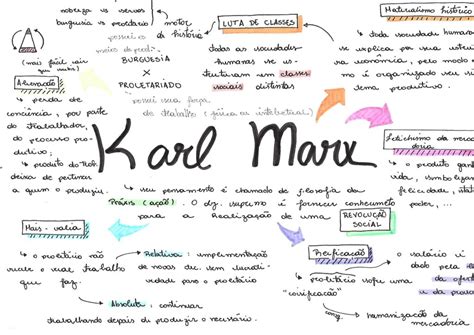 nobreza vs servos
burguesia vs proletário
motor
da história
LUTA DE CLASSES
todas as sociedades
humanas se es-
truturam em classes
sociais distintas
possui os
meios de prod.
BURGUESIA
X
PROLETARIADO
possui sua força
de trabalho (física ou intelectual)
Materialismo histórico
toda sociedade humana
se explica por sua
economia, pelo modo
é organizado seu
sistema produtivo.
(mais fácil cair
que subir)
Alienação
perda de
consciência, por parte
do trabalhador,
do processo
produtivo;
produto do trab.
deixa de pertencer
a quem o produziu.
Karl Marx
Fetichismo da merca
doria
o produto
vida, simboliza
felicidade,
poder, ...
seu pensamento é chamado de filosofia da
Práxis (ação). O obj. supremo é fornecer conhecimento
para a Realização de uma
REVOLUÇÃO
SOCIAL
Mais-valia
o proletário não
recebe o real trabalho
que faz.
Relativa: implementação
de novas
para o proletário
Absoluta: continuar
trabalhando depois de produzir o necessário.
Reificação
o salário é
dado pela
da oferta
e da
proletário sofre uma
"coisificação"
humanização da
mercadoria